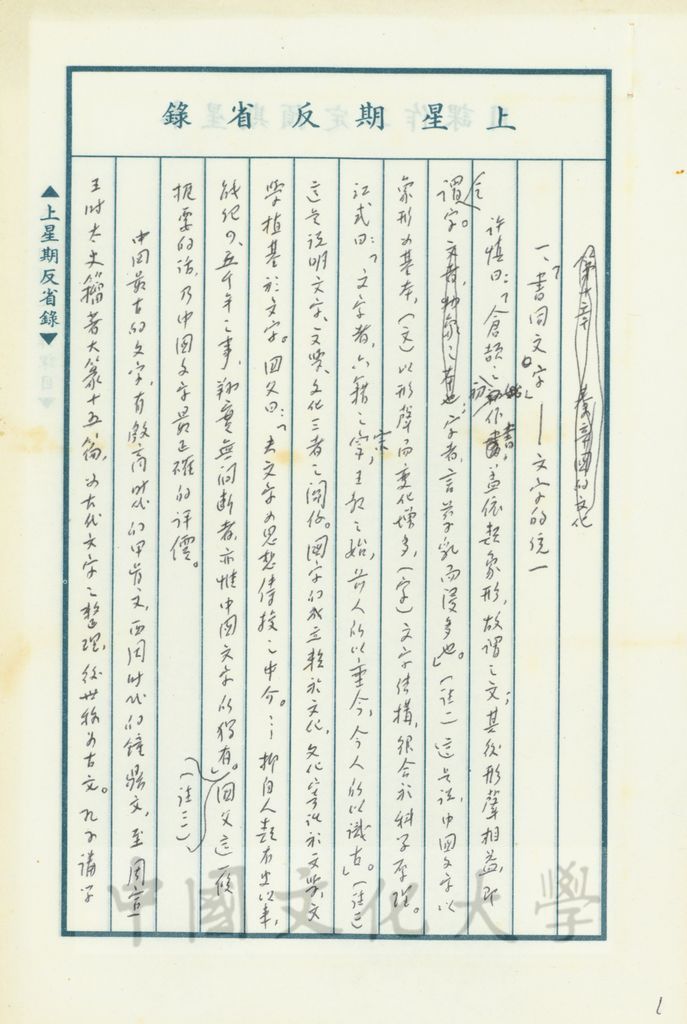 上星期反省錄
第十章 秦帝國的文化
一、「書同文字」——文字的統一
許慎曰:「倉頡之初作書,蓋依類象形,故謂之文;其後形聲相益,即
謂之字。文者,物象之本也;字者言孳乳而浸多也。」(註一)這是說,中國文字以
象形為基本,(文)以形聲而變化增多,(字)文字結構,很合於科學原理。
江式曰:「文字者,六籍之宗,王教之始,前人所以垂今,今人所以識古」。(註二)
這是說明文字、文學、文化三者之關係。國字的成立較於文化,文化寄託於文學,文
學植基於文字。國父曰:「夫文字為思想傳授之中介。…抑自人類有史以來,
能紀四、五千年之事,翔實無間斷者,亦惟中國文字所獨有。」國父這一條
(註三)
扼要的話,乃中國文字最正確的評價。
中國最古的文字,有殷商時代的甲骨文,西周時代的鐘鼎文,至周宣
王時太史籀著大篆十五篇,為古代文字之整理,後世稱為古文。孔子講學
▲上星期反省錄▼
中國文化大學
1